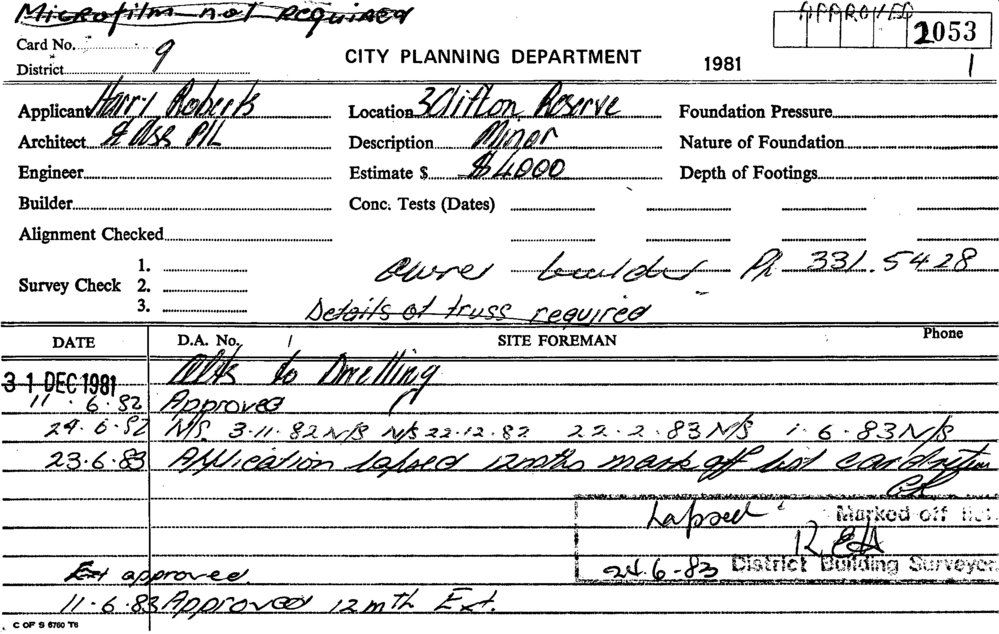 Microfilm not required
APPROVED
Card No. 9 2053
District CITY PLANNING DEPARTMENT 1981 1
Applicant Harry Roberts Location 3 Clifton Reserve Foundation Pressure
Architect & Ass P/L Description Minor Nature of Foundation
Engineer Estimate $ $4000 Depth of Footings
Builder Conc. Tests (Dates)
Alignment Checked
Survey Check 1. 2. 3.
Owner builder Ph 331.5428
Details of truss required
DATE D.A. No. SITE FOREMAN Phone
31 DEC 1981 Alts to Dwelling
11.6.82 Approved
24.6.82 N/S. 3.11.82 N/S N/S 22.12.82 22.2.83 N/S 1.6.83 N/S
23.6.83 Application lapsed 12mths mark off list
Lapsed Marked off list
24.6.83 District Building Surveyor
Ext approved
11.6.83 Approved 12mth Ext.
C OF S 6760 T6